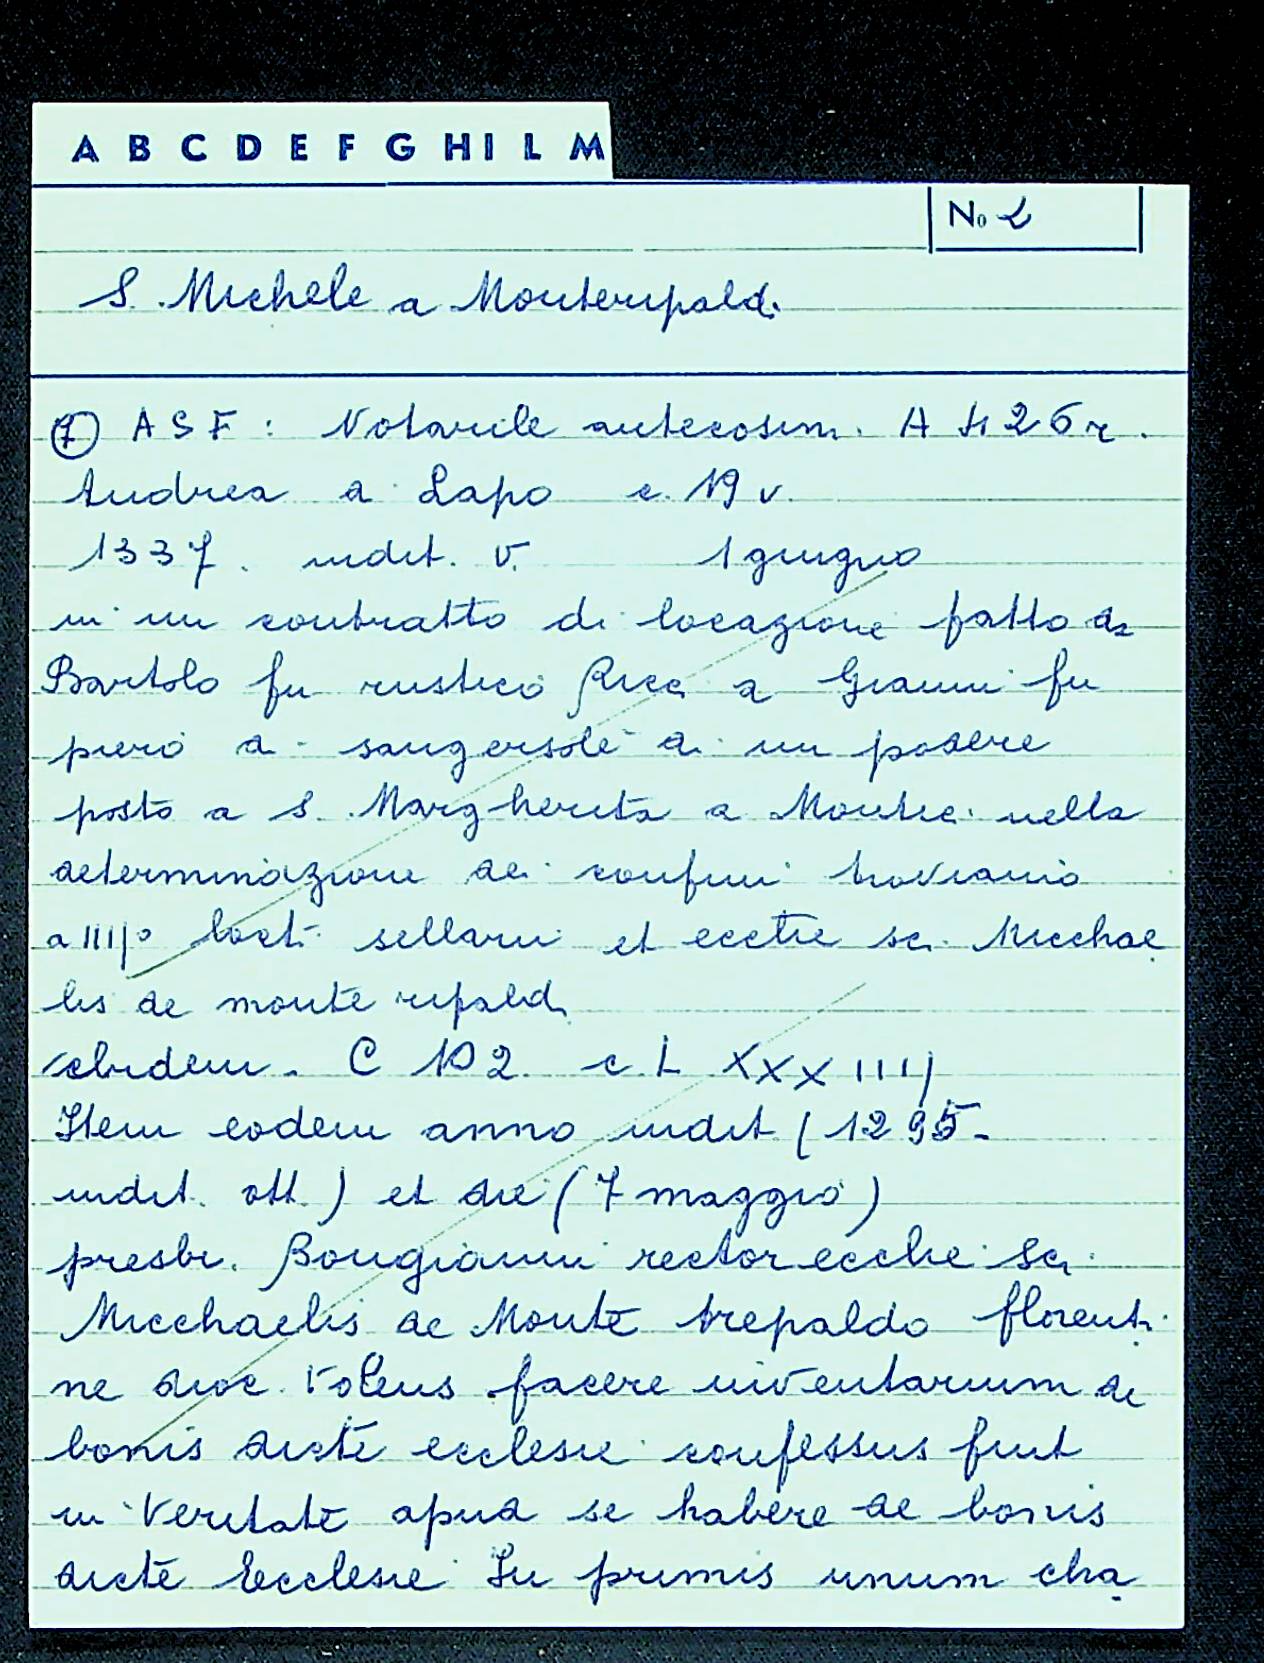 A B C D E F G H I L M
No 2
S. Michele a Monteripaldi
① A S F : Notarile antecosim. A 426 r.
Andrea di Lapo c. 19 v.
1337. indit. V. 1 giugno
in un contratto di locazione fatto da
Bartolo fu rustico Ricci a Gianni fu
piero di sangersole di un podere
posto a S. Margherita a Montici nella
determinazione dei confini troviamo
a IIIJ° sellarii et eccie sci Micchae
lis de monte ripaldi
ibidem. C 102 c. L XXXIIIJ
Item eodem anno indit (1295-
indit. ott.) et die (7 maggio)
presbr. Bongianni rector ecclie Sci
Micchaelis de Monte trepaldo florenti
ne dioc. Volens facere inventarium de
bonis dicte ecclesie confessus fuit
in veritate apud se habere de bonis
dicte Ecclesie In primis unum cha